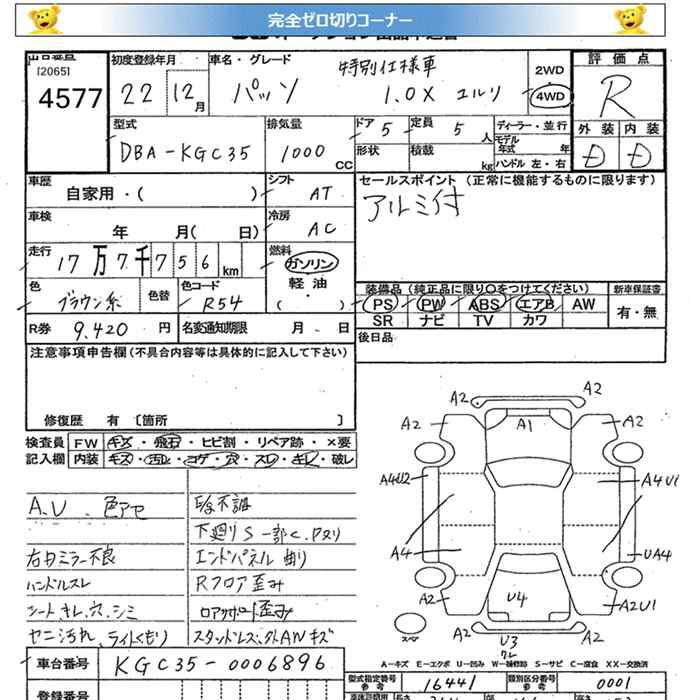 完全ゼロ切りコーナー
[2065]
4577
初度登録年月
22 12月
車名・グレード
特別仕様車
パッソ 1.0X ユルリ
2WD
4WD
評価点
R
外装 内装
D D
型式
DBA-KGC35
排気量
1000 CC
ドア 5
定員 5 人
形状
積載 kg
ディーラー・並行
モデル年式 年
ハンドル 左・右
車歴
自家用・( )
シフト
AT
車検
年 月( 日)
冷房
AC
走行
17万7千756km
燃料
ガソリン
軽油
( )
セールスポイント (正常に機能するものに限ります)
アルミ付
色
ブラウン系
色替
色コード
R54
装備品(純正品に限り○をつけてください)
PS PW ABS エアB AW
SR ナビ TV カワ
新車保証書
有・無
R券 9,420 円
名変通知期限 月 日
後日品
注意事項申告欄(不具合内容等は具体的に記入して下さい)
修復歴 有 〔箇所 〕
検査員記入欄
FW キズ・飛石・ヒビ割・リペア跡・×要
内装 キズ・汚れ・コゲ・穴・スレ・キレ・破レ
A.U 色アセ
右ミラー不良
ハンドルスレ
シートキレ、穴、シミ
ヤニ汚れ、ライトくもり
下廻りS一部C、Pヌリ
エンドパネル曲り
Rフロア歪み
コアサポート歪み
スタッドレス、外AWキズ
A2 A2
A2 A1 A2
A4U2 A4U1
A4 UA4
A2 U4 A2U1
A2 U3 A2
スペア
A-キズ E-エクボ U-凹み W-補修跡 S-サビ C-腐食 XX-交換済
車台番号
KGC35-0006896
型式指定番号
参考
16441
類別区分番号
参考
0001
登録番号